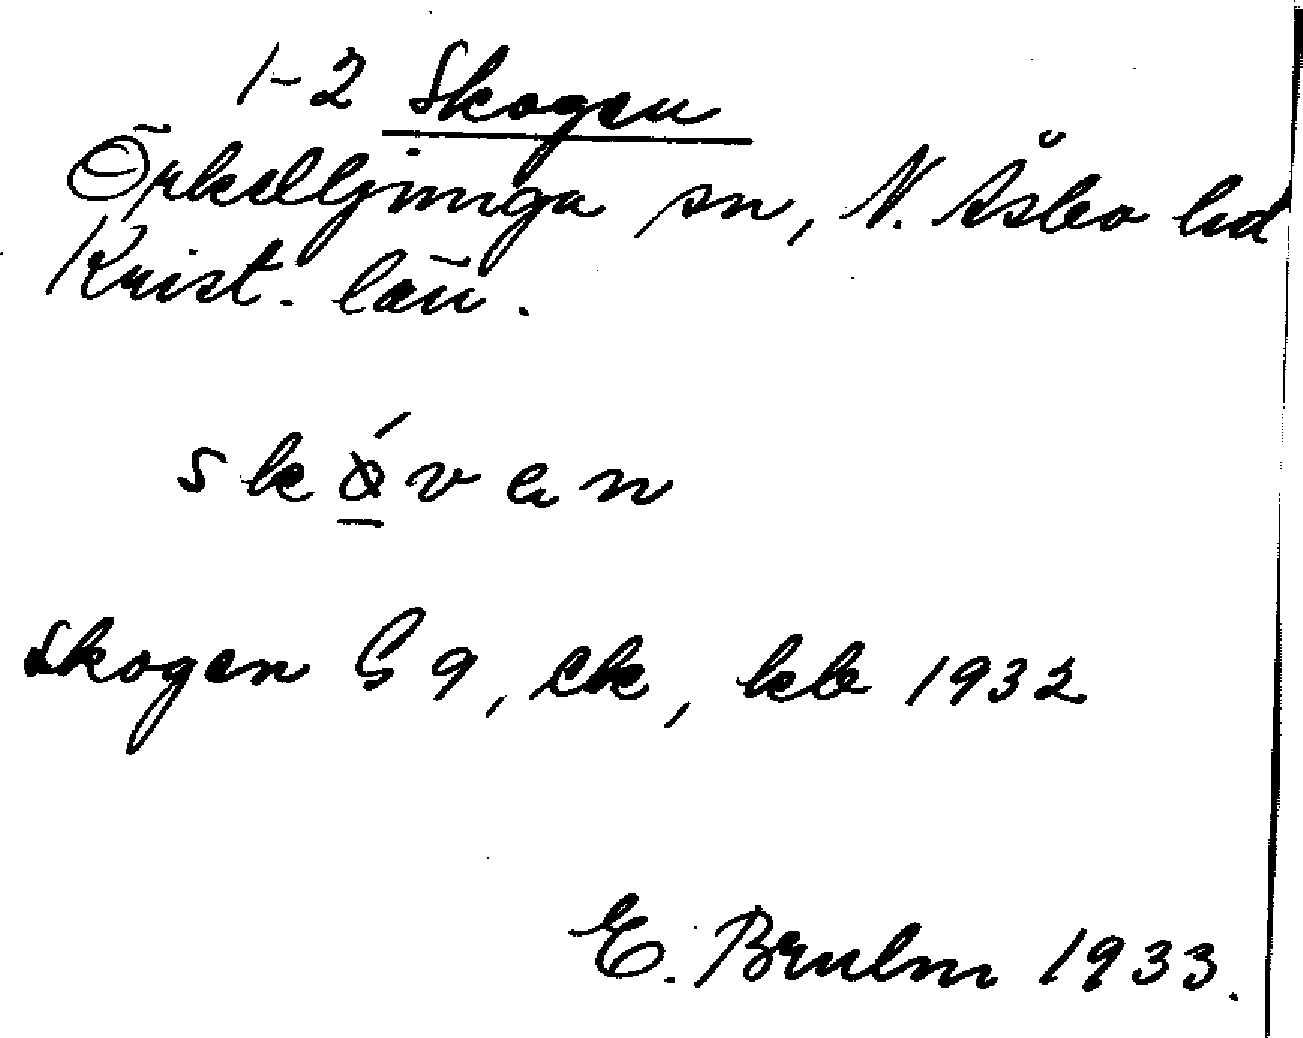 1-2 Skogen
Örkelljunga sn, N. Åsbo hd
Krist. län.
skǿven
Skogen G 9, ek, kb 1932
E. Bruhn 1933.